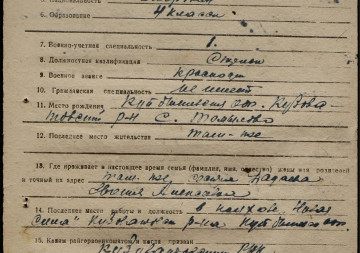 6. Образование 4 класса
7. Военно-учетная специальность 1.
8. Должностная квалификация Стрелок
9. Военное звание красноарм
10. Гражданская специальность не имеет
11. Место рождения Куйбышевская обл. Кузова
товский р-н с. Томылово
12. Последнее место жительства там-же
13. Где проживает в настоящее время семья (фамилия, имя, отчество) жены или родителей
и точный их адрес там-же
14. Последнее место работы и должность в колхозе
р-на Куйбышев обл.
15. Каким райвоенкоматом и числа призван
Кузоватовским РВК